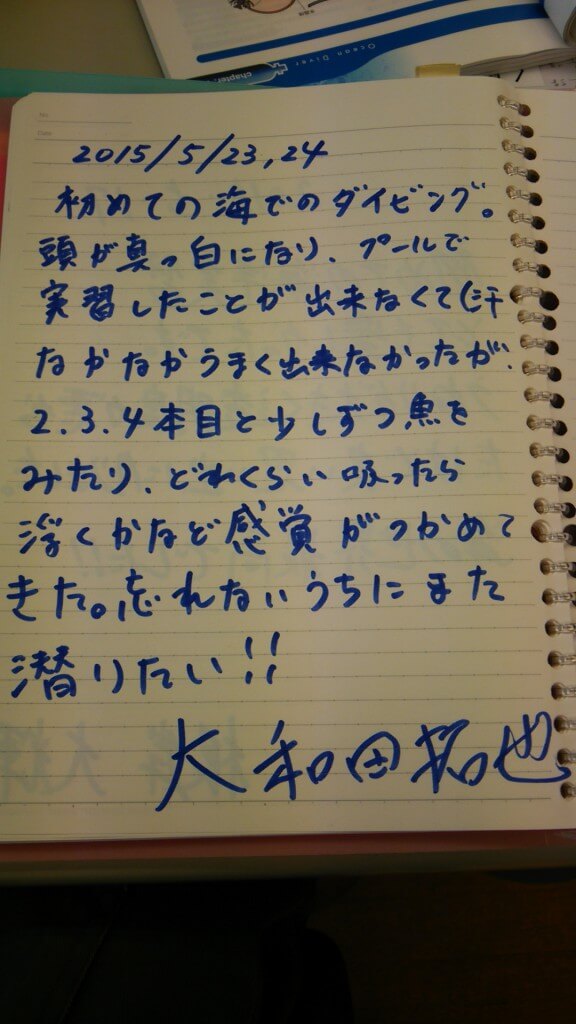 Ocean Diver
chapter
No.
Date
2015/5/23,24
初めての海でのダイビング。
頭が真っ白になり、プールで
実習したことが出来なくて(汗
なかなかうまく出来なかったが、
2.3.4本目と少しずつ魚を
みたり、どれくらい吸ったら
浮くかなど感覚がつかめて
きた。忘れないうちにまた
潜りたい!!
大和田拓也